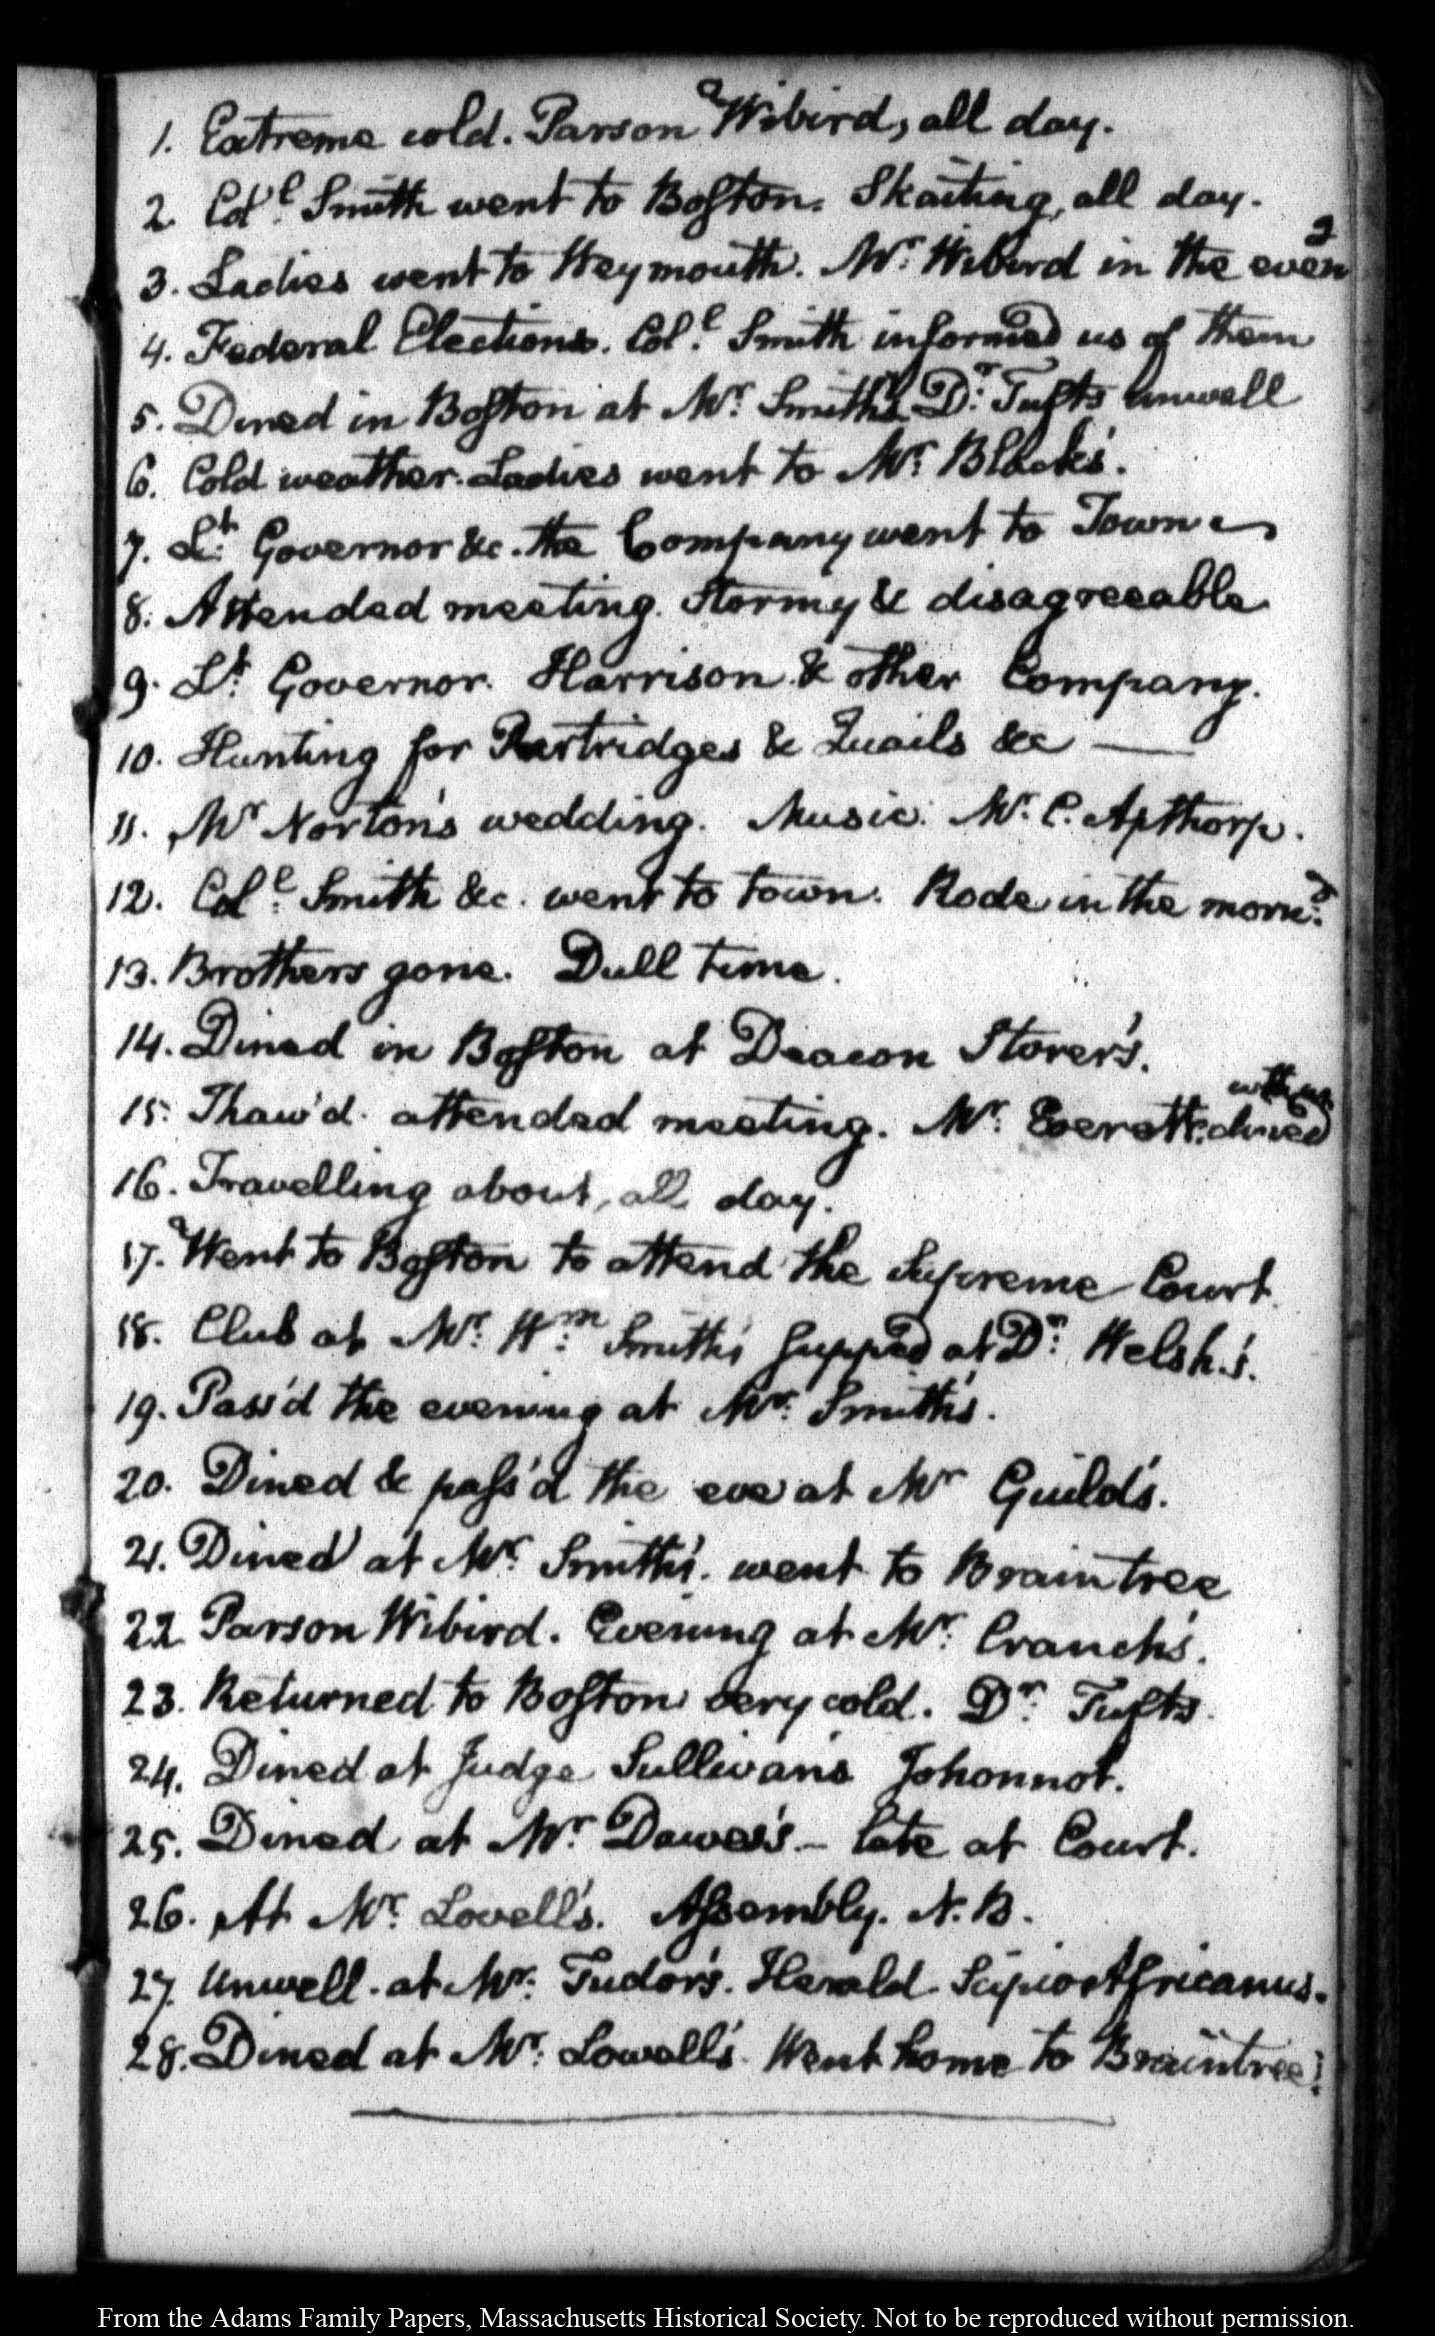 1. Extreme cold. Parson Wibird, all day.
2. Col.l Smith went to Boston. Skaiting, all day.
3. Ladies went to Weymouth. Mr. Wibird in the eveng
4. Federal Elections. Col.l Smith informed us of them
5. Dined in Boston at Mr. Smith's Dr. Tufts unwell
6. Cold weather. Ladies went to Mr. Black's.
7. Lt. Governor &c. the Company went to Town
8. Attended meeting. Stormy & disagreeable
9. Lt. Governor. Harrison & other Company.
10. Hunting for Partridges & Quails &c —
11. Mr Norton's wedding. Music. Mr. C. Apthorp.
12. Col.l Smith &c. went to town. Rode in the morng.
13. Brothers gone. Dull time.
14. Dined in Boston at Deacon Storer's.
15. Thaw'd. attended meeting. Mr. Everett. dined with us
16. Travelling about, all day.
17. Went to Boston to attend the Supreme Court.
18. Club at Mr. Wm. Smith's supped at Dr. Welsh's.
19. Pass'd the evening at Mr. Smith's.
20. Dined & pass'd the eve at Mr Guild's.
21. Dined at Mr. Smith's. went to Braintree
22. Parson Wibird. Evening at Mr. Cranch's.
23. Returned to Boston very cold. Dr. Tufts.
24. Dined at Judge Sullivan's Johonnot.
25. Dined at Mr. Dawes's — late at Court.
26. At Mr. Lovell's. Assembly. N.B.
27. Unwell. at Mr. Tudor's. Herald. Scipio Africanus.
28. Dined at Mr. Lowell's. Went home to Braintree.
From the Adams Family Papers, Massachusetts Historical Society. Not to be reproduced without permission.